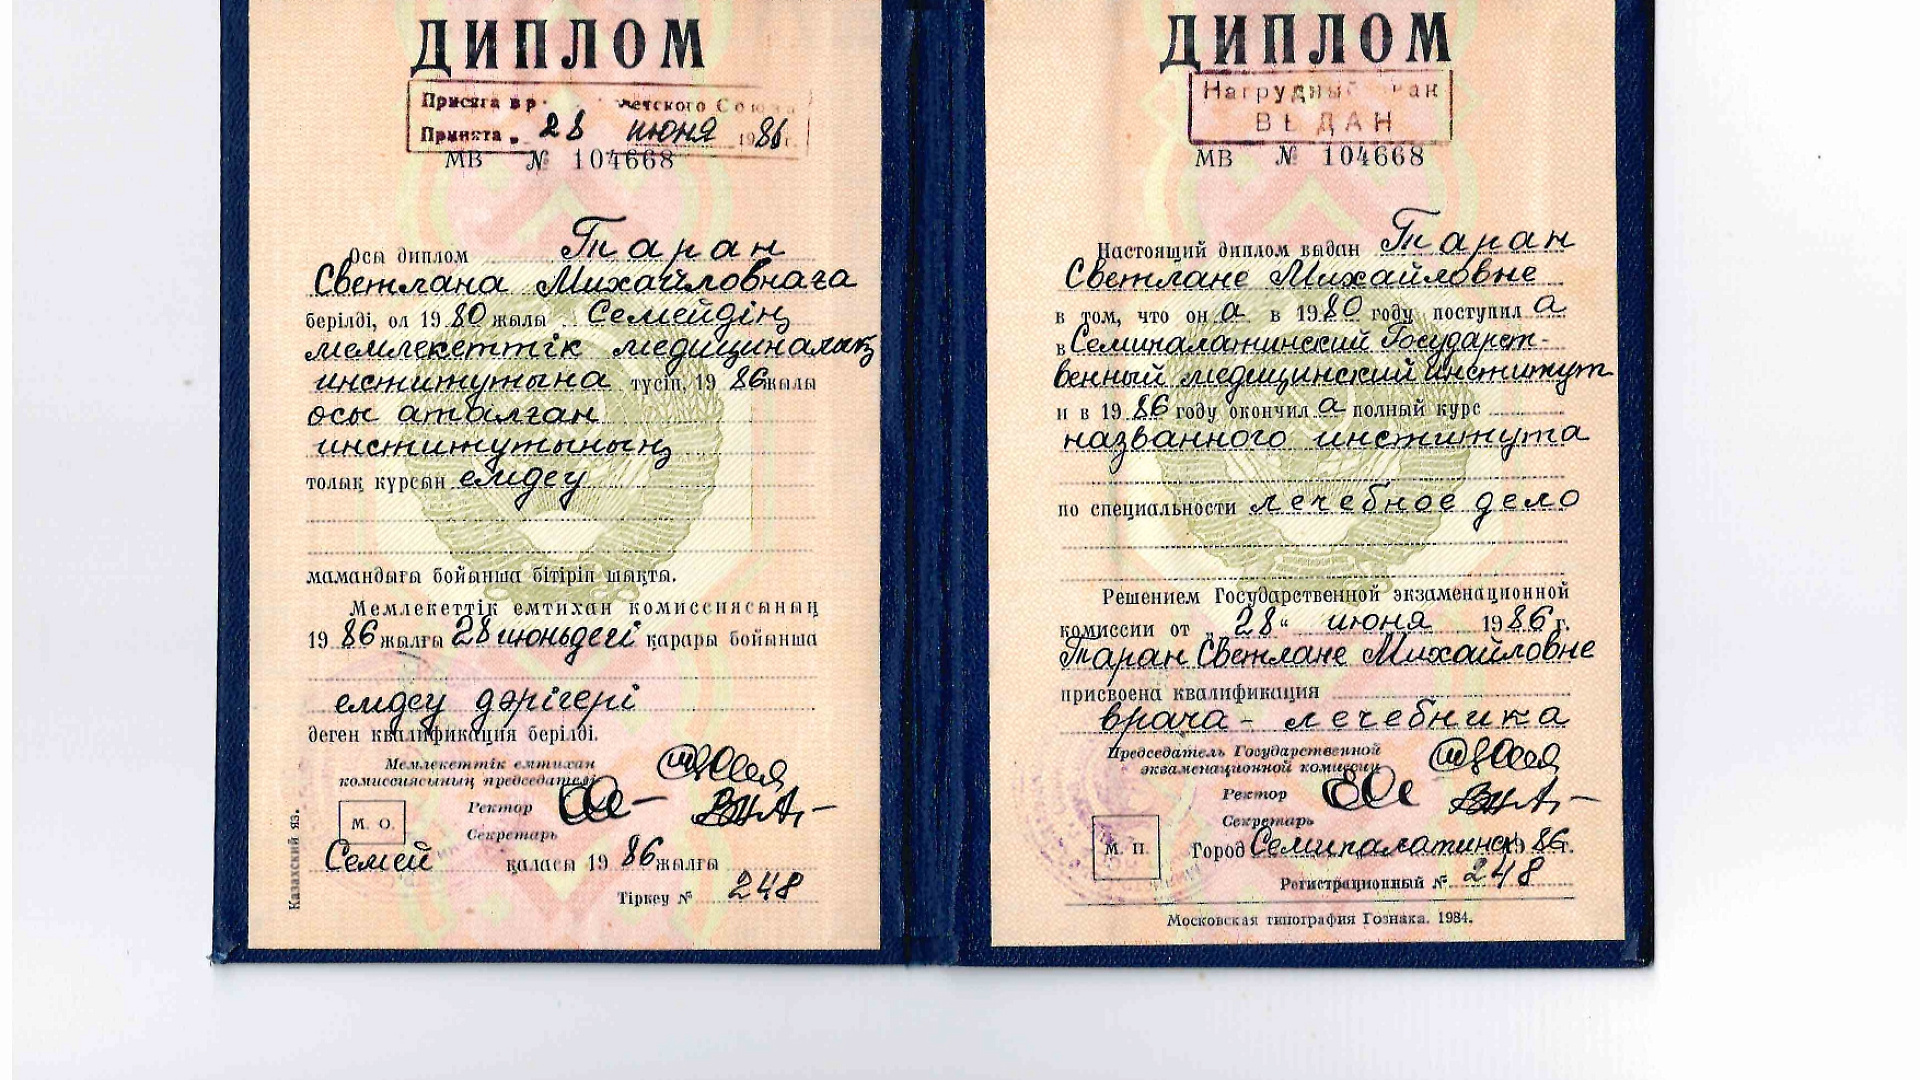 ДИПЛОМ
Присяга вр етского Союза
Принята „ 28 июня 1986 г.
МВ № 104668
Осы диплом Таран
Светлана Михайловнаға
берілді, ол 1980 жылы Семейдің
мемлекеттік медициналық
институтына түсіп, 1986 жылы
осы аталған
институтының
толық курсын емдеу
мамандығы бойынша бітіріп шықты.
Мемлекеттік емтихан комиссиясының
1986 жылғы 28 июньдегі қарары бойынша
емдеу дәрігері
деген квалификация берілді.
Мемлекеттік емтихан
комиссиясының председателі
Ректор
Секретарь
М. О.
Семей қаласы 1986 жылғы
Тіркеу № 248
Казахский яз.
ДИПЛОМ
Нагрудный знак
ВЫДАН
МВ № 104668
Настоящий диплом выдан Таран
Светлане Михайловне
в том, что он а в 1980 году поступил а
в Семипалатинский Государст-
венный медицинский институт
и в 1986 году окончил а полный курс
названного института
по специальности лечебное дело
Решением Государственной экзаменационной
комиссии от „28“ июня 1986 г.
Таран Светлане Михайловне
присвоена квалификация
врача - лечебника
Председатель Государственной
экзаменационной комиссии
Ректор
Секретарь
М. П.
Город Семипалатинск 1986 г.
Регистрационный № 248
Московская типография Гознака. 1984.